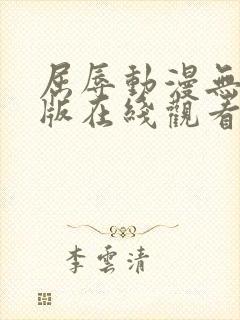 屈辱動漫無
版在綫觀看
李雲清